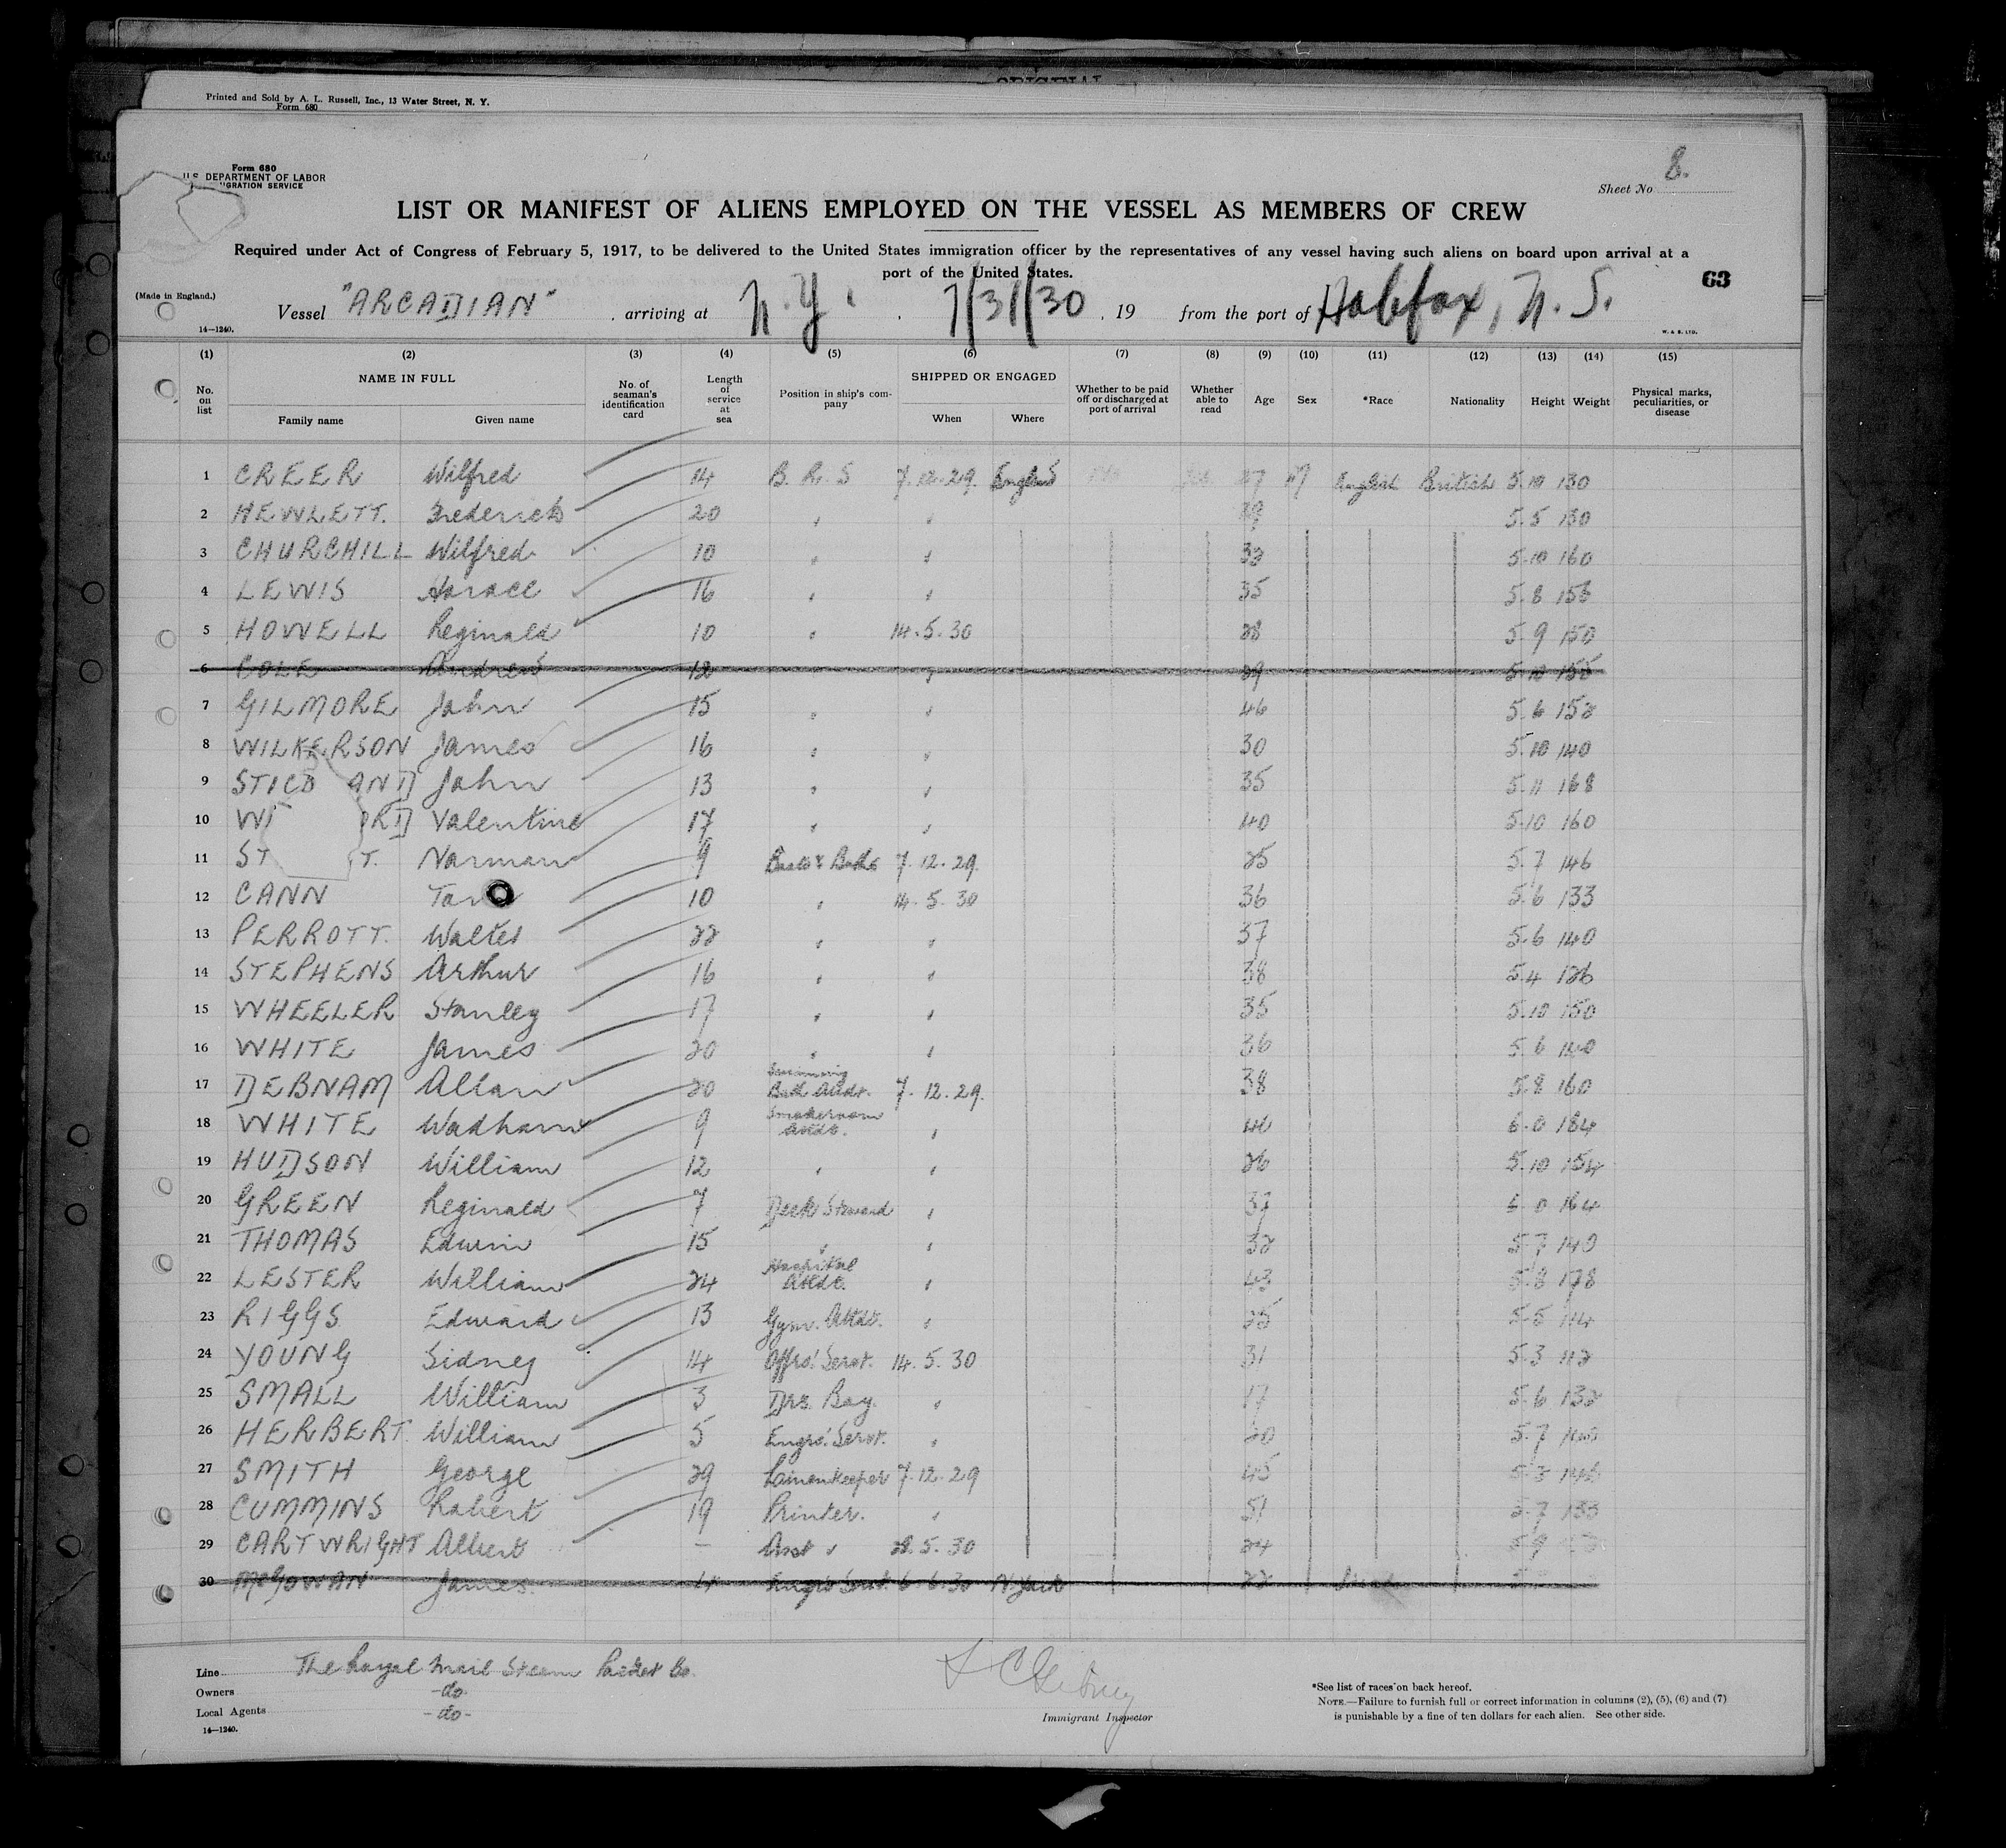 ORIGINAL
Printed and Sold by A. L. Russell, Inc., 13 Water Street, N. Y.
Form 680
Form 680
U.S. DEPARTMENT OF LABOR
IGRATION SERVICE
8.
Sheet No
LIST OR MANIFEST OF ALIENS EMPLOYED ON THE VESSEL AS MEMBERS OF CREW
Required under Act of Congress of February 5, 1917, to be delivered to the United States immigration officer by the representatives of any vessel having such aliens on board upon arrival at a
port of the United States.
63
(Made in England.)
Vessel "ARCADIAN", arriving at N.Y., 7/31/30, 19 from the port of Halifax, N.S.
14—1240.
W. & S. LTD.
(1) (2) (3) (4) (5) (6) (7) (8) (9) (10) (11) (12) (13) (14) (15)
No. on list NAME IN FULL Family name Given name No. of seaman's identification card Length of service at sea Position in ship's company SHIPPED OR ENGAGED When Where Whether to be paid off or discharged at port of arrival Whether able to read Age Sex *Race Nationality Height Weight Physical marks, peculiarities, or disease
1 CREER Wilfred 14 B. R. S 7.12.29. England 37 M English British 5.10 130
2 HEWLETT. Frederick 20 " " 39 5.5 130
3 CHURCHILL Wilfred 10 " " 32 5.10 160
4 LEWIS Horace 16 " " 35 5.8 156
5 HOWELL Reginald 10 " 14.5.30 28 5.9 150
6 COLE Andrew 12 " 29 5.10 155
7 GILMORE John 15 " " 46 5.6 152
8 WILKERSON James 16 " " 30 5.10 140
9 STICD AND John 13 " " 35 5.11 168
10 WI RD Valentine 17 " " 40 5.10 160
11 ST T. Norman 9 Boots & Baths 7.12.29. 25 5.7 146
12 CANN 10 " 14.5.30 36 5.6 133
13 PERROTT. Walter 22 " " 37 5.6 140
14 STEPHENS Arthur 16 " " 38 5.4 126
15 WHEELER Stanley 17 " " 35 5.10 150
16 WHITE James 20 " " 36 5.6 140
17 DEBNAM Allan 20 Swimming Bath Attdt. 7.12.29. 38 5.8 160
18 WHITE Wadham 9 Smokeroom Attdt. " 40 6.0 184
19 HUDSON William 12 " " 26 5.10 154
20 GREEN Reginald 7 Deck Steward " 37 6 0 164
21 THOMAS Edwin 15 " " 32 5.7 140
22 LESTER William 24 Hospital Attdt. " 43 5.8 178
23 RIGGS Edward 13 Gym. Attdt. " 25 5.5 114
24 YOUNG Sidney 14 Offrs' Servt. 14.5.30 31 5.3 112
25 SMALL William 3 Drs. Boy. " 17 5.6 132
26 HERBERT. William 5 Engrs' Servt. " 20 5.7
27 SMITH George 29 Linenkeeper 7.12.29 45
28 CUMMINS Robert 19 Printer. " 51 5.7 133
29 CARTWRIGHT Albert – Asst " 28.5.30 24 5.9
30 McGOWAN James. 4 Engrs Servt 6.6.30 N. York 22
Line The Royal Mail Steam Packet Co.
Owners -do-
Local Agents -do-
14—1240.
Immigrant Inspector
*See list of races on back hereof.
NOTE.—Failure to furnish full or correct information in columns (2), (5), (6) and (7)
is punishable by a fine of ten dollars for each alien. See other side.